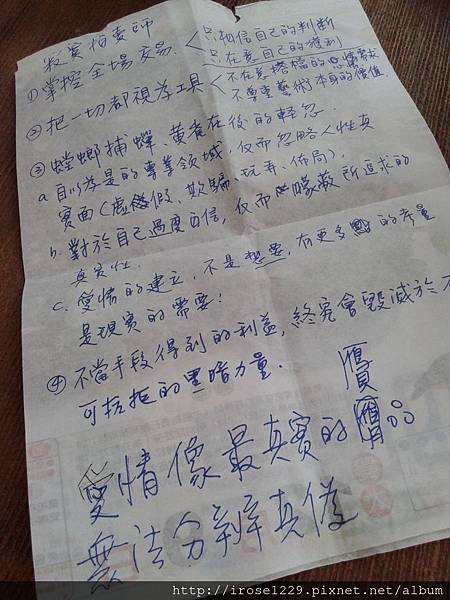 寂寞拍賣師
① 掌控全場交易.
只相信自己的判斷
只在意自己的獲利
不在意搭檔的心情需求
不尊重藝術本身的價值.
② 把一切都視為工具
③ 螳螂捕蟬、黃雀在後的輕忽.
a. 自以為是的專業領域, 仅而忽略人性真
實面(虛假、欺騙、玩弄、佈局).
b. 對於自己過度自信, 仅而矇蔽所追求的
真實性.
c. 愛情的建立, 不是想要, 有更多的考量
是現實的需要!
④ 不當手段得到的利益, 終究會毀滅於不
可抗拒的黑暗力量.
贋
愛情像最真實的贋品
無法分辨真偽
http://irose1229.pixnet.net/album